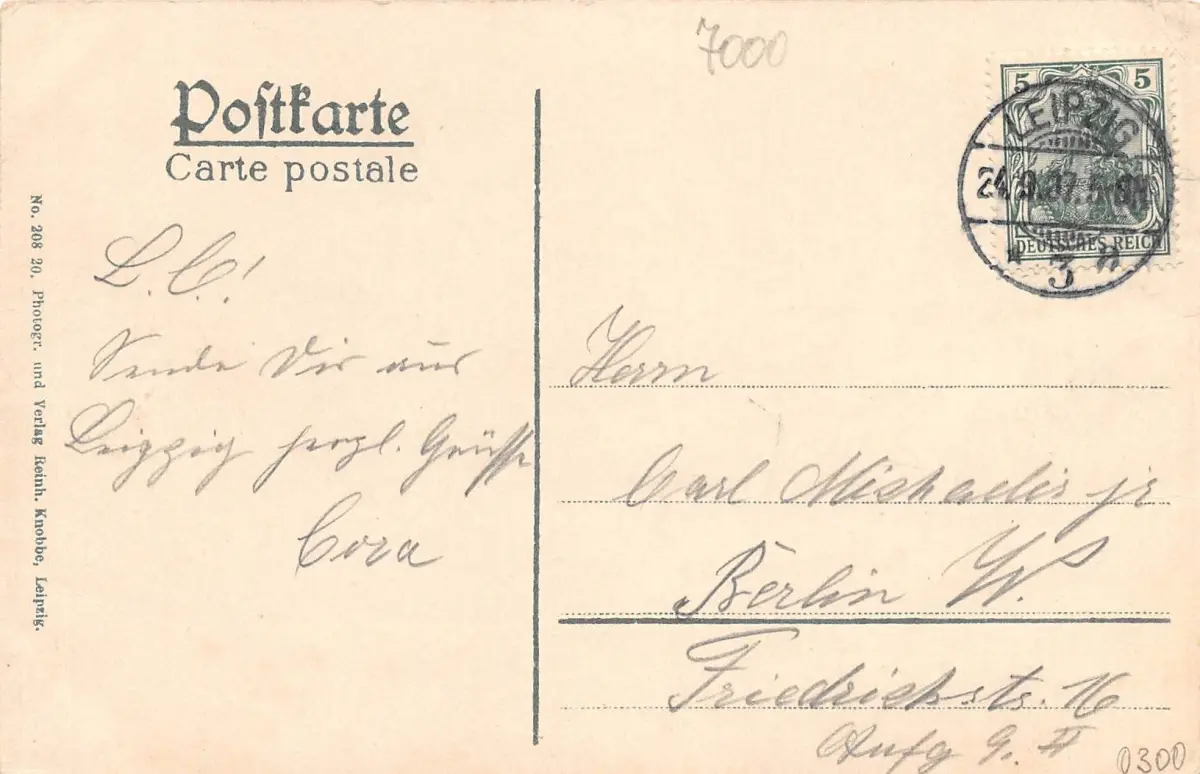 7000
Poſtkarte
Carte postale
5 5
LEIPZIG
24.9.07.
DEUTSCHES REICH
* 3
No. 208 20. Photogr. und Verlag Reinh. Knobbe, Leipzig.
L. C!
Sende Dir aus
Leipzig herzl. Grüsse
Cora
Herrn
Carl Michaelis jr
Berlin W.
Friedrichstr. 16
Aufg II
0300